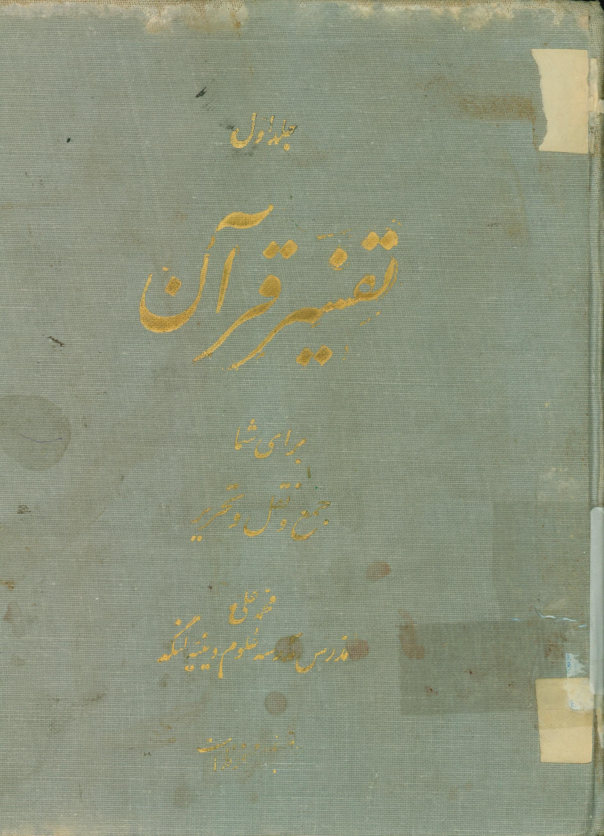 جلد اول
تفسیر قرآن
برای شما
جمع و نقل و تحریر
محمد علی
مدرس مدرسه علوم دینیه لنگه